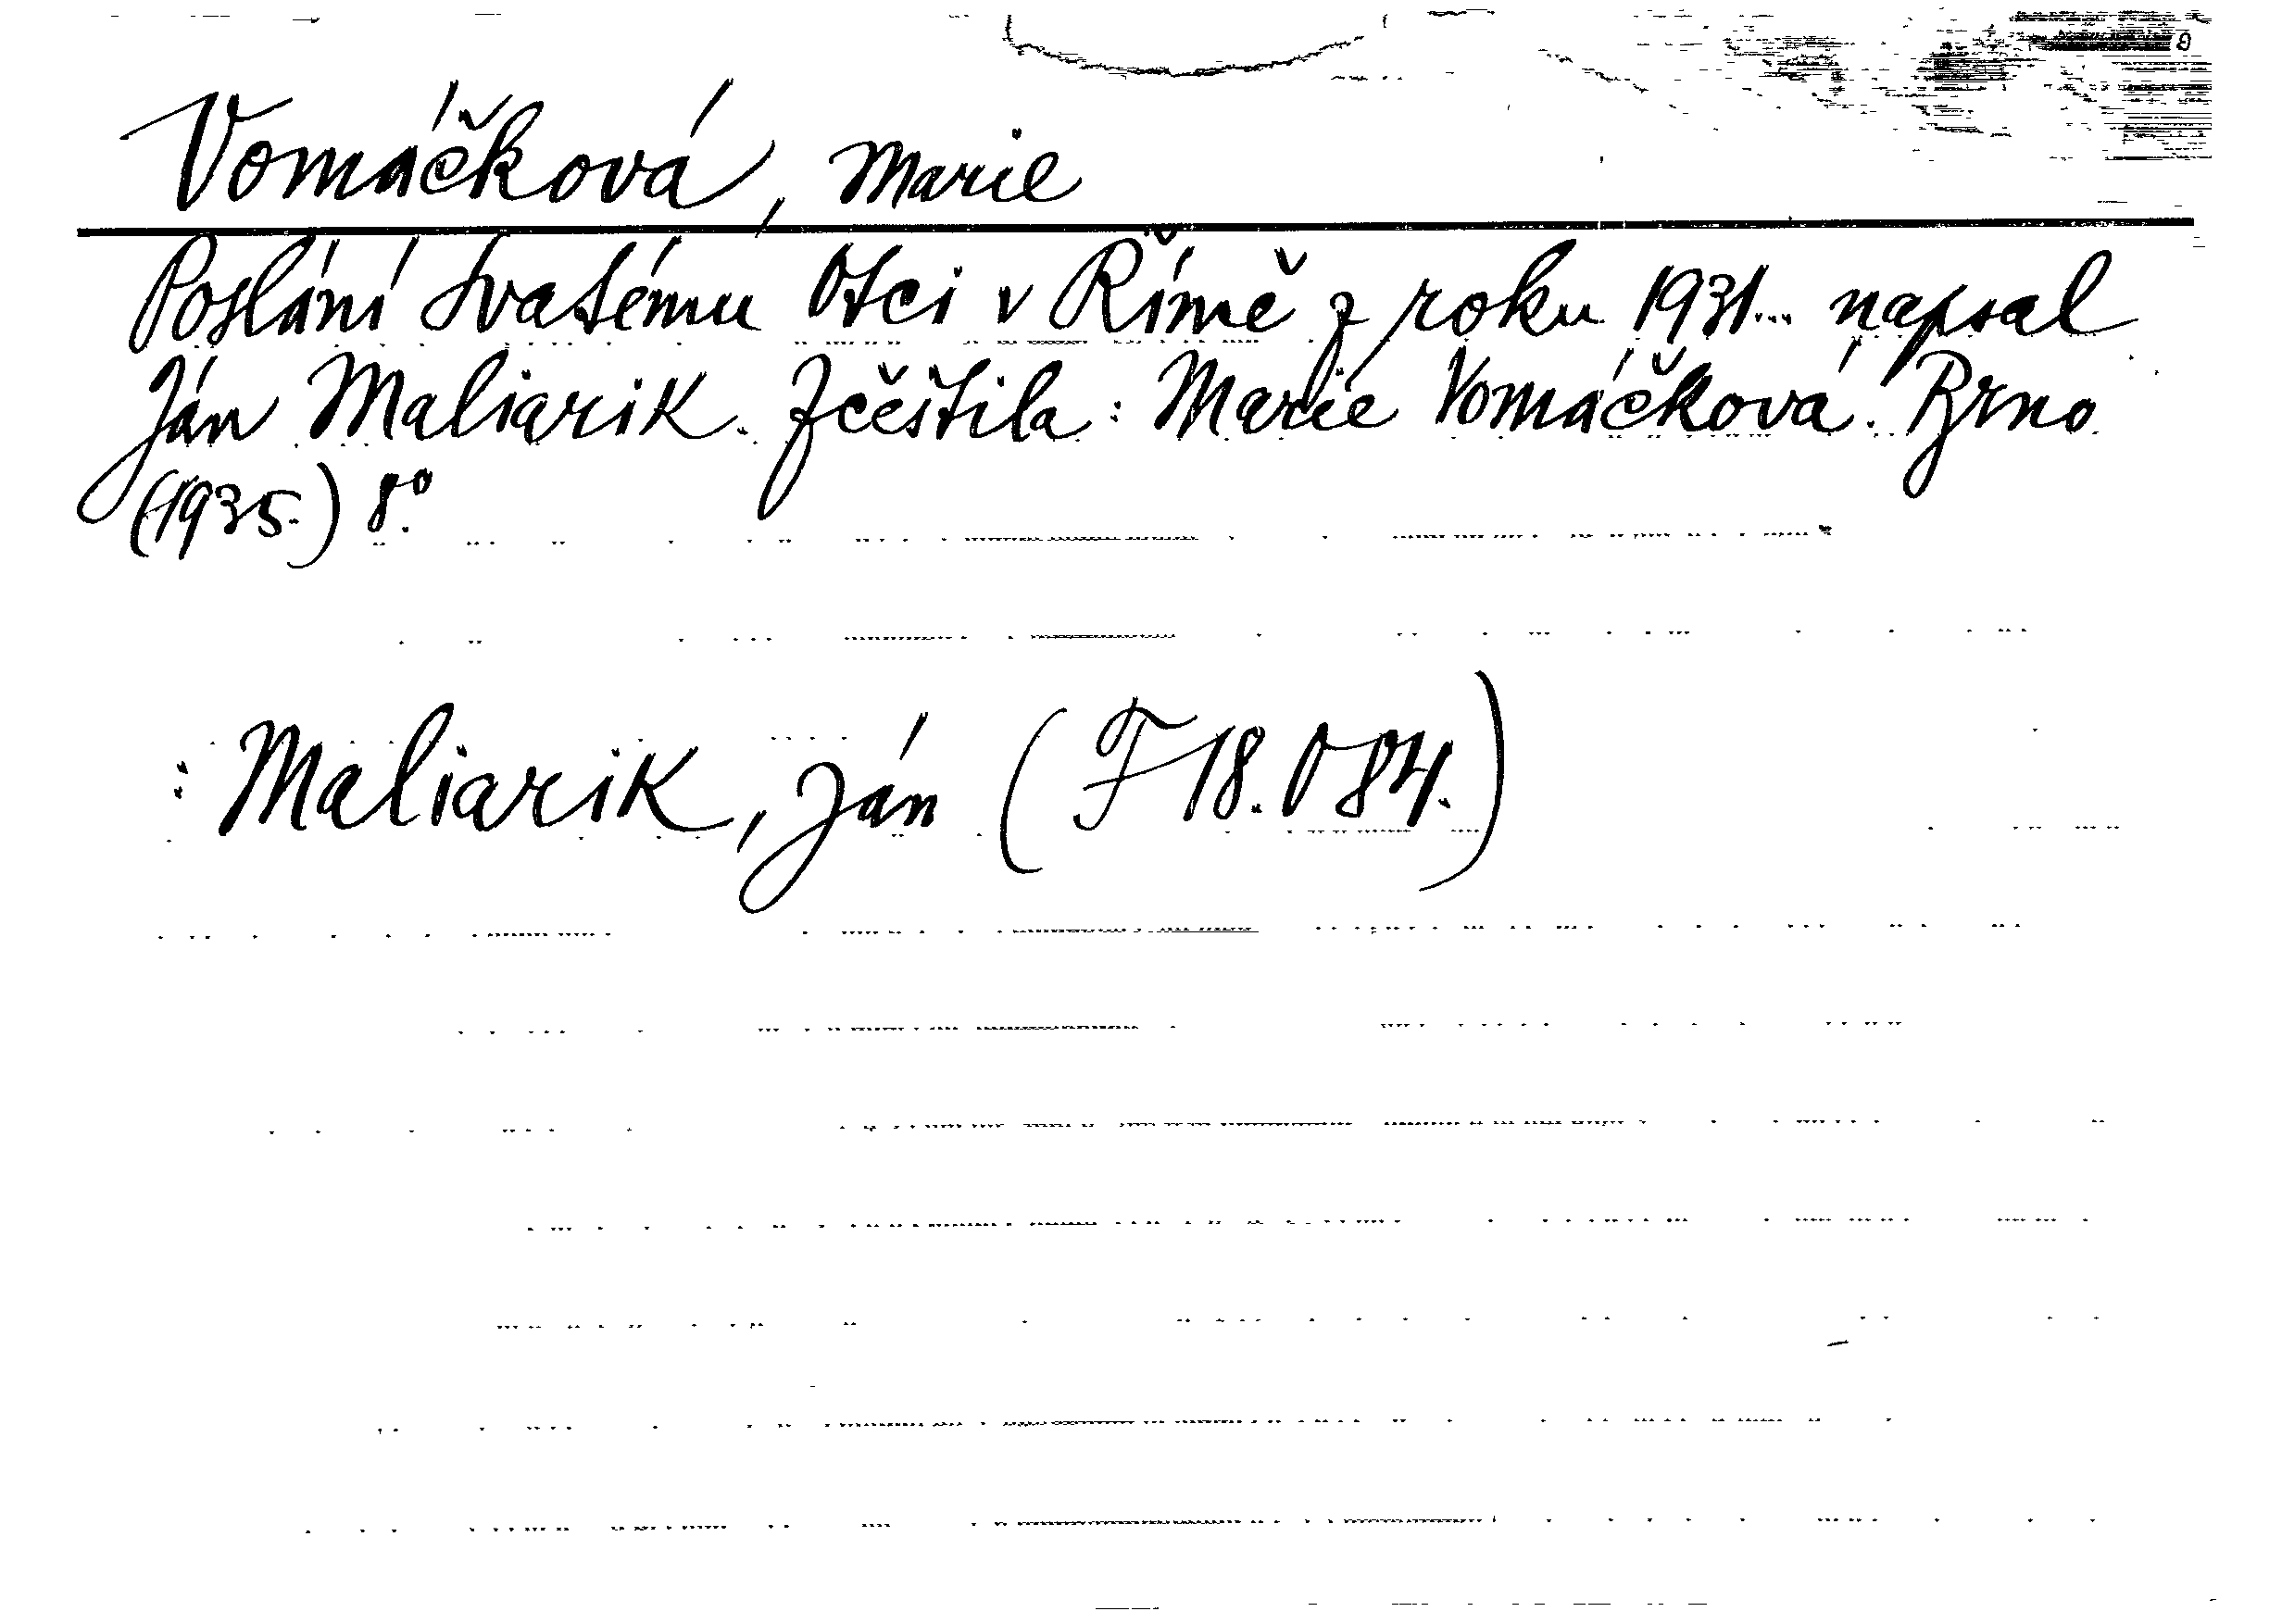 Vomáčková, Marie
Poslání Svatému Otci v Římě z roku 1931... napsal
Ján Maliarik. Zčeštila: Marie Vomáčková. Brno
(1935.) 8.°
: Maliarik, Ján (F 18.084.)